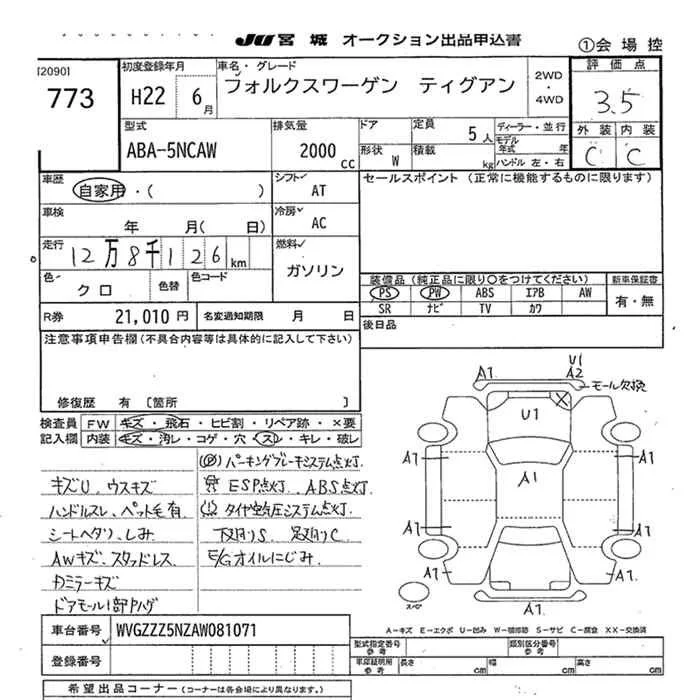 JU 宮城 オークション出品申込書
①会場控
[20901
773
初度登録年月
H22 6月
車名・グレード
フォルクスワーゲン ティグアン
2WD・4WD
評価点
3.5
型式
ABA-5NCAW
排気量
2000cc
ドア
形状 W
定員 5人
積載 kg
ディーラー・並行
モデル年式 年
ハンドル 左・右
外装 内装
C C
車歴
自家用・( )
シフト
AT
セールスポイント (正常に機能するものに限ります)
車検
年 月( 日)
冷房
AC
走行
12万8千126km
燃料
ガソリン
色
クロ
色替
色コード
装備品 (純正品に限り〇をつけてください)
新車保証書
PS PW ABS エアB AW
有・無
SR ナビ TV カワ
R券 21,010円
名変通知期限 月 日
後日品
注意事項申告欄(不具合内容等は具体的に記入して下さい)
修復歴 有 [箇所 ]
検査員記入欄
FW キズ・飛石・ヒビ割・リペア跡・×要
内装 キズ・汚レ・コゲ・穴・スレ・キレ・破レ
キズU、ウスキズ
ハンドルスレ、ペット毛有
シートヘタリ、しみ
AWキズ、スタッドレス
Dミラーキズ
ドアモール1部ハゲ
(Ⓟ) パーキングブレーキシステム点灯.
ESP点灯、ABS点灯.
(!) タイヤ空気圧システム点灯.
下廻りS 足廻りC
E/Gオイルにじみ.
A1
U1
A2
モール欠損
U1
A1
A1
A1
A1
A1
A1
A1
A1
スペア
A-キズ E-エクボ U-凹み W-補修跡 S-サビ C-腐食 XX-交換済
車台番号 WVGZZZ5NZAW081071
登録番号
型式指定番号 参考
類別区分番号 参考
車庫証明用 参考
長さ cm
幅 cm
高さ cm
希望出品コーナー (コーナーは各会場により異なります。)